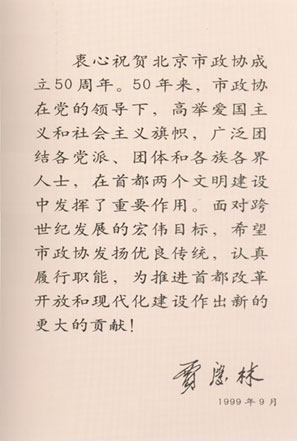 衷心祝贺北京市政协成
立50周年。50年来，市政协
在党的领导下，高举爱国主
义和社会主义旗帜，广泛团
结各党派、团体和各族各界
人士，在首都两个文明建设
中发挥了重要作用。面对跨
世纪发展的宏伟目标，希望
市政协发扬优良传统，认真
履行职能，为推进首都改革
开放和现代化建设作出新的
更大的贡献！
贾庆林
1999年9月